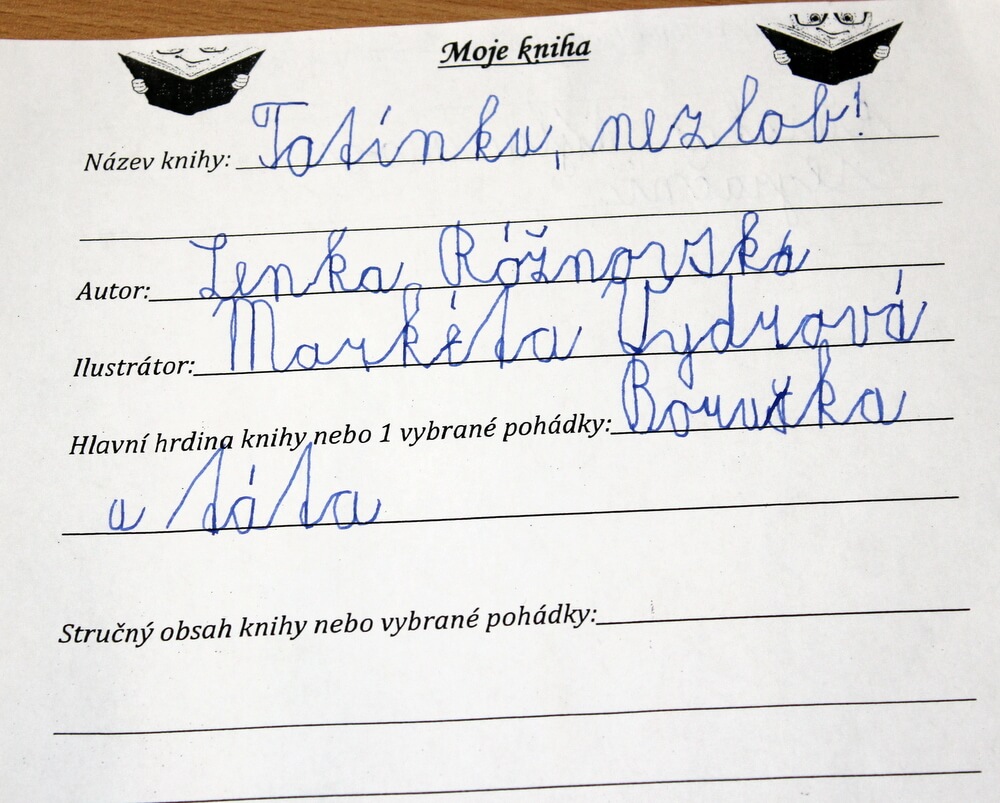 Moje kniha
Název knihy: Tatínku, nezlob!
Autor: Lenka Róžnovská
Ilustrátor: Markéta Vydrová
Hlavní hrdina knihy nebo 1 vybrané pohádky: Borůvka
a táta
Stručný obsah knihy nebo vybrané pohádky: